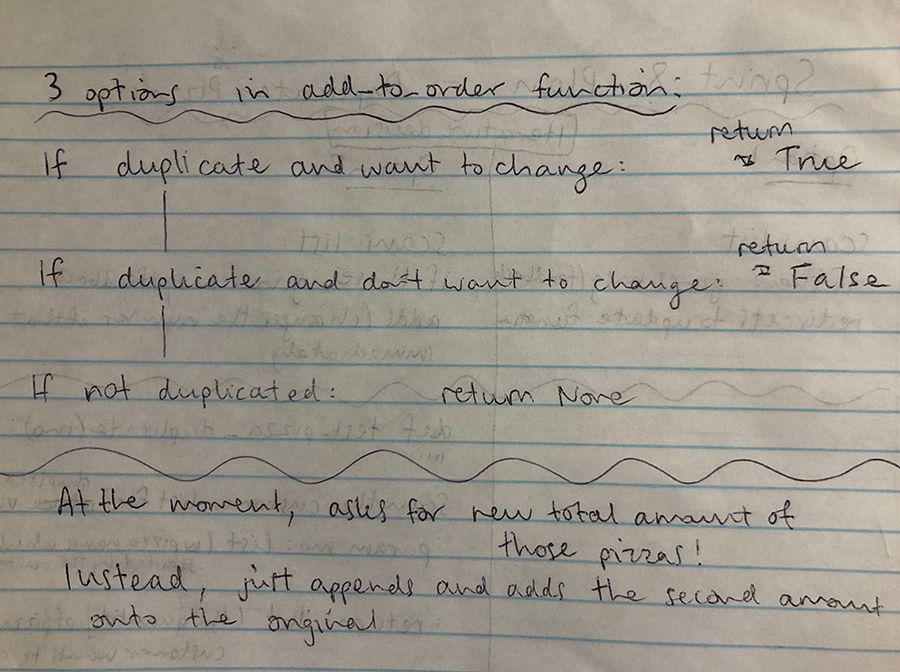 3 options in add_to_order function:
If duplicate and want to change: return True
If duplicate and don't want to change: return False
If not duplicated: return None
At the moment, asks for new total amount of
those pizzas!
Instead, just appends and adds the second amount
onto the original